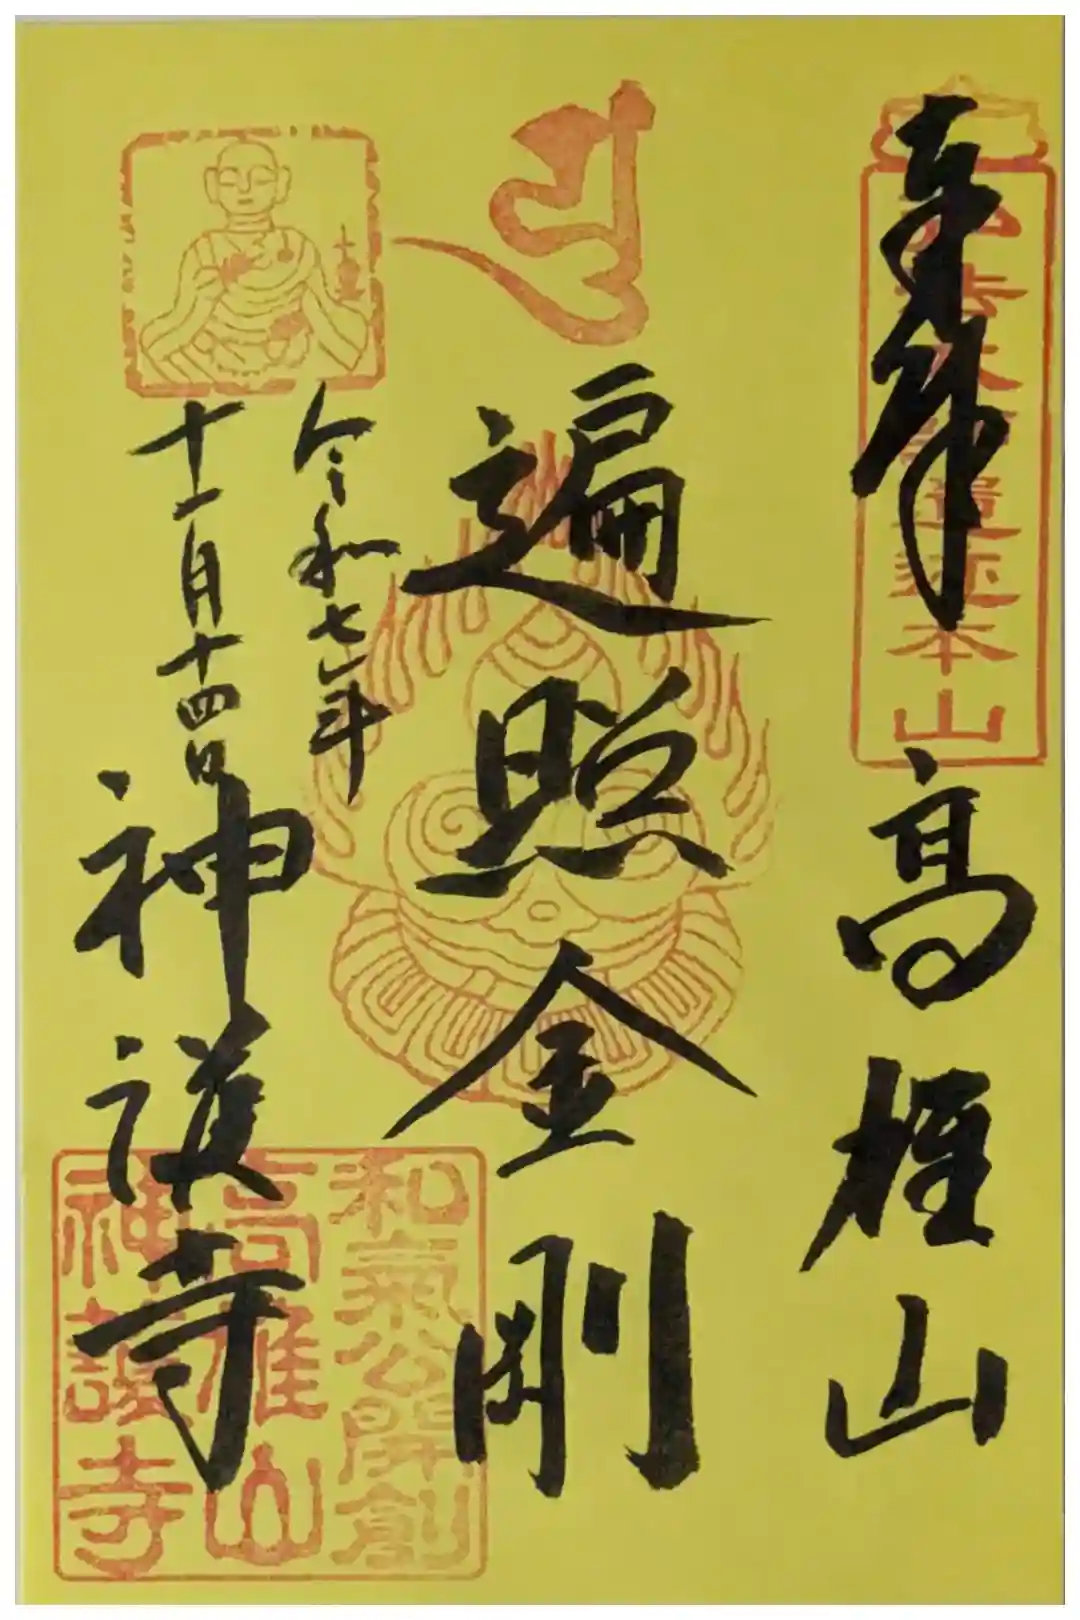 奉拝
弘法大師霊迹本山
高雄山
遍照金剛
令和七年
十一月十四日
神護寺
和氣公開創
高雄山
神護寺